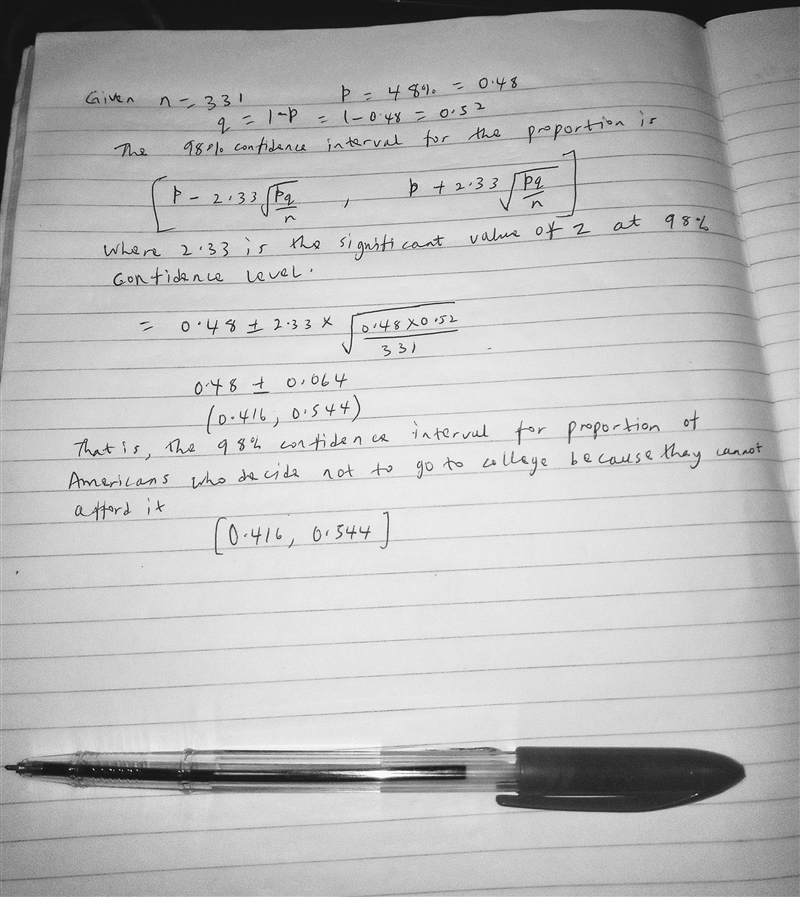 Given n = 331 p = 48% = 0.48
q = 1-p = 1-0.48 = 0.52
The 98% confidence interval for the proportion is
[p - 2.33√(pq/n) , p + 2.33√(pq/n)]
where 2.33 is the significant value of Z at 98%
Confidence level.
= 0.48 ± 2.33 × √(0.48×0.52/331)
0.48 ± 0.064
(0.416, 0.544)
That is, the 98% confidence interval for proportion of
Americans who decide not to go to college because they cannot
afford it
[0.416, 0.544]